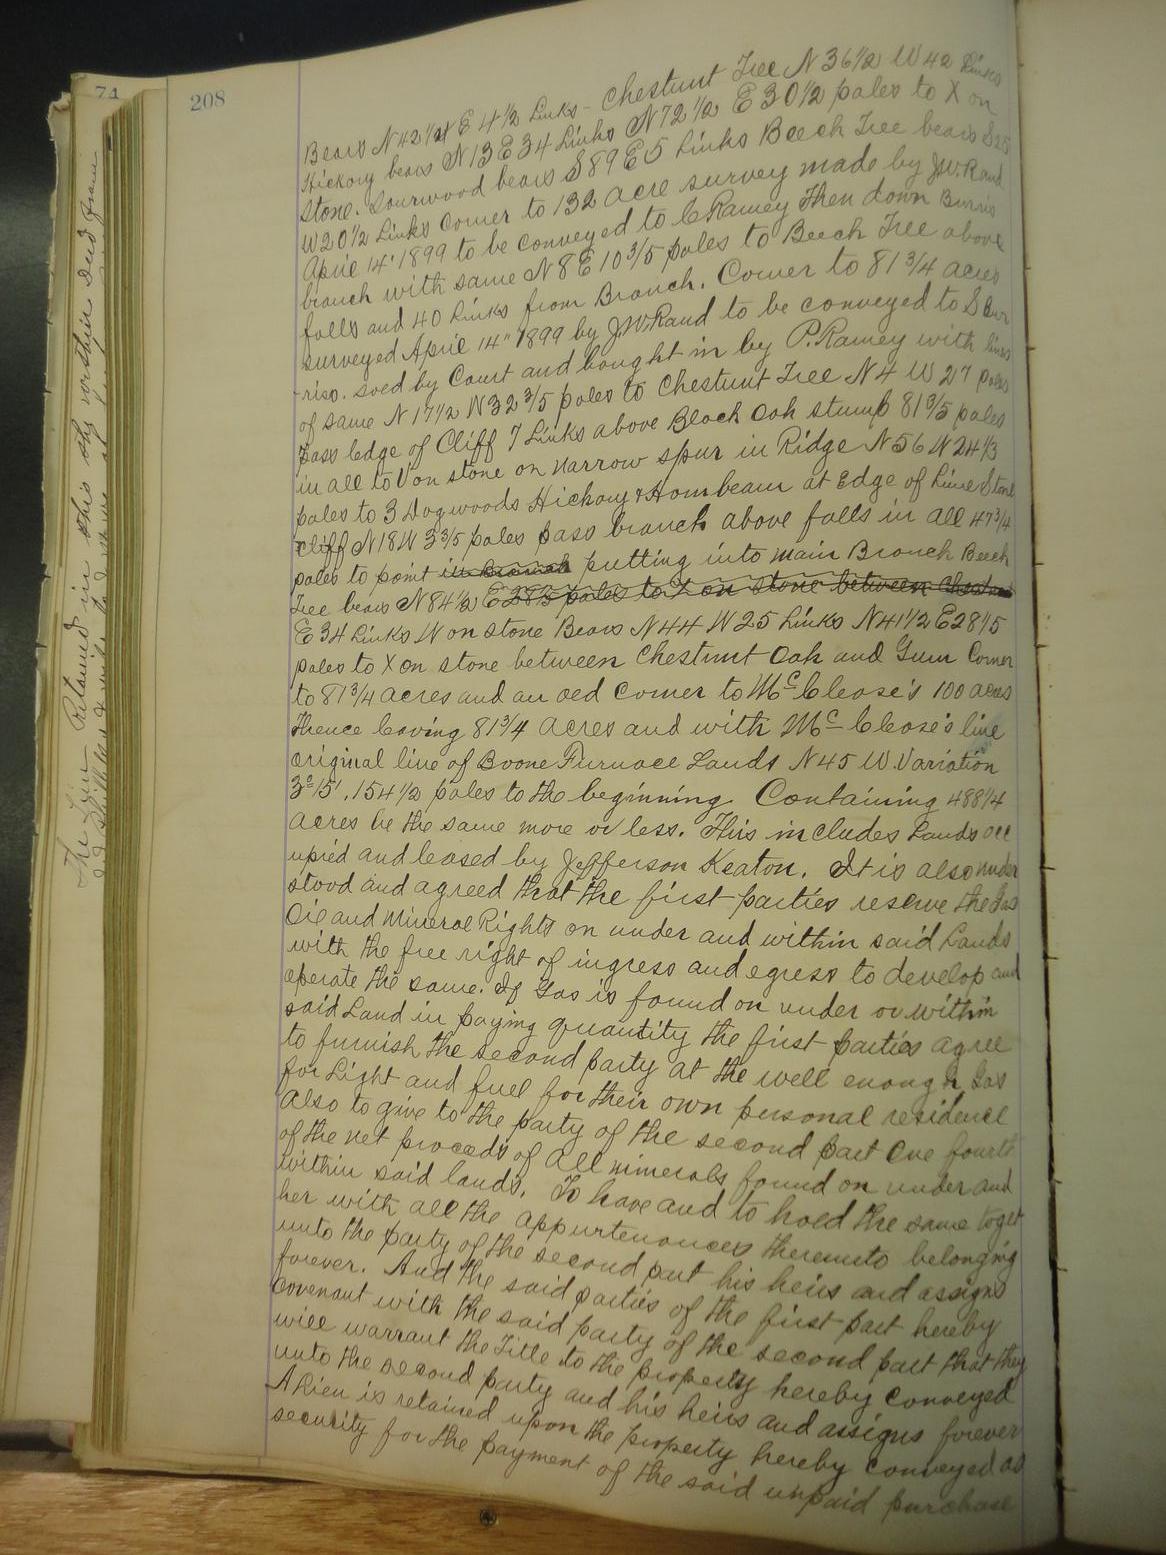 208
Bears N 42 1/2 W E 4 1/2 Links - Chestnut Tree N 36 1/2 W 42 Links
Hickory bears N 13 E 34 Links N 72 1/2 E 30 1/2 poles to X on
Stone. Sourwood bears S 89 E 5 Links Beech Tree bears S 25
W 20 1/2 Links Corner to 132 acre survey made by J.W. Rand
April 14" 1899 to be conveyed to C Ramey Then down Burris
branch with same N 8 E 10 3/5 poles to Beech Tree above
falls and 40 Links from Branch. Corner to 81 3/4 acres
surveyed April 14" 1899 by J.W. Rand to be conveyed to S Bur
-riss. sold by Court and bought in by P. Ramey with lines
of same N 17 1/2 W 32 3/5 poles to Chestnut Tree N 4 W 27 poles
pass Edge of Cliff 7 Links above Black Oak stump 81 3/5 poles
in all to V on stone on narrow spur in Ridge N 56 W 24 1/3
poles to 3 Dogwoods Hickory & Hornbeam at Edge of Lime Stone
Cliff N 18 W 3 3/5 poles pass branch above falls in all 47 3/4
poles to point in Branch putting into main Branch Beech
Tree bears N 84 1/2 E 28 3/5 poles to X on stone between Chestnut
E 34 Links W on Stone Bears N 44 W 25 Links N 41 1/2 E 28 1/5
poles to X on stone between Chestnut Oak and Gum Corner
to 81 3/4 acres and an old corner to McClease's 100 acres
thence leaving 81 3/4 acres and with McClease's line
original line of Boone Furnace Lands N 45 W Variation
3° 15', 154 1/2 poles to the beginning. Containing 488 1/4
acres be the same more or less. This includes Lands occ
upied and leased by Jefferson Keaton. It is also under
stood and agreed that the first parties reserve the Gas
Oil and Mineral Rights on under and within said Lands
with the free right of ingress and egress to develop and
operate the same. If Gas is found on under or within
said Land in paying quantity the first parties agree
to furnish the second party at the well enough Gas
for Light and fuel for their own personal residence
Also to give to the party of the second part one fourth
of the net proceeds of all minerals found on under and
within said lands. To have and to hold the same toget
her with all the appurtenances thereunto belonging
unto the party of the second part his heirs and assigns
forever. And the said parties of the first part hereby
Covenant with the said party of the second part that they
will warrant the Title to the property hereby conveyed
unto the second party and his heirs and assigns forever
A Lien is retained upon the property hereby conveyed as
security for the payment of the said unpaid purchase
The Lien Retained in this the within deed from